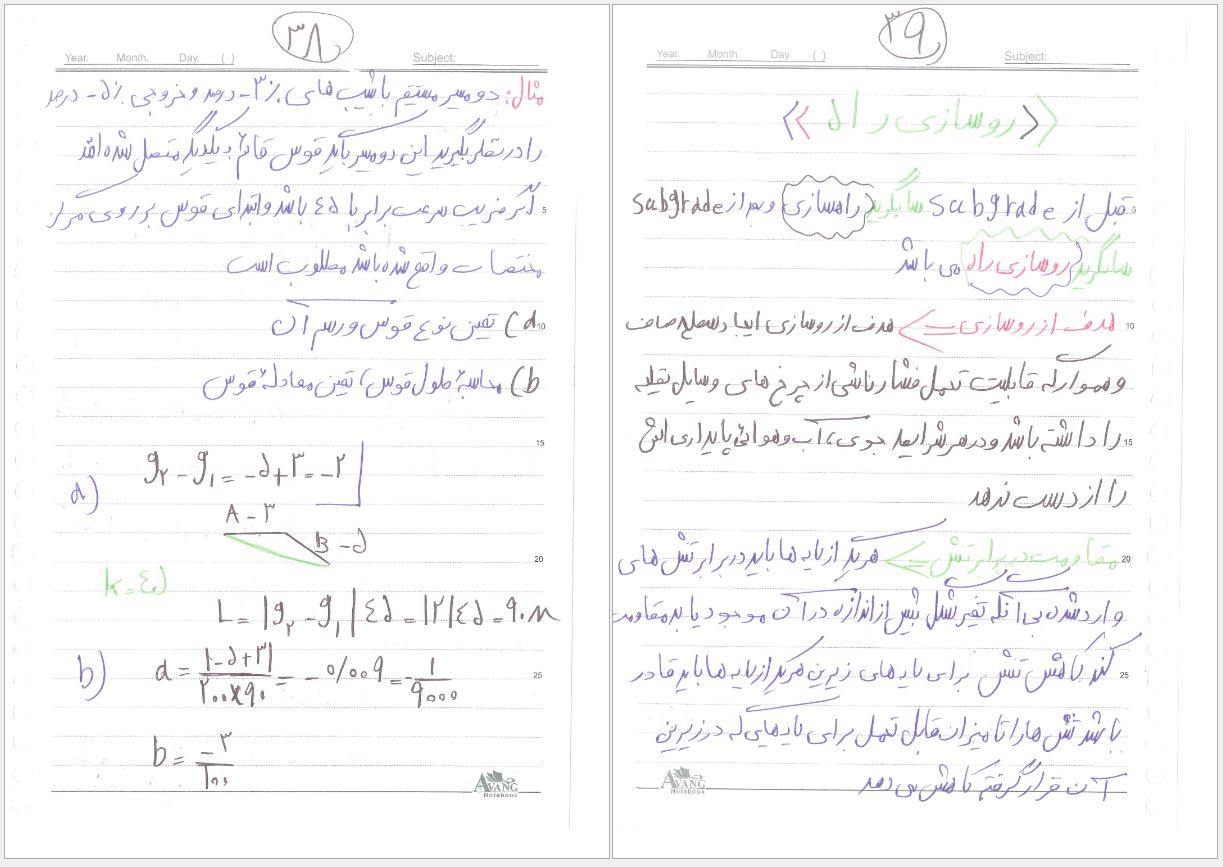 ۳۸
Year. Month. Day. ( ) Subject:
مثال: دو مسیر مستقیم با شیب های ٪۳- درصد و خروجی ٪۵- درصد
را در نظر بگیرید این دو مسیر باید قوس قائم به یکدیگر متصل شده اند
اگر ضریب سرعت برابر با ۴۵ باشد و ابتدای قوس بر روی مرکز
مختصات واقع شده باشد مطلوب است
a) تعین نوع قوس و رسم آن
b) محاسبهٔ طول قوس، تعین معادلهٔ قوس
a) g₂ - g₁ = -۵+۳ = -۲
A -۳
B -۵
k = ۴۵
L = |g₂ - g₁| ۴۵ = |۲| ۴۵ = ۹۰ m
b) a = |-۵+۳| / ۲۰۰×۹۰ = -۰/۰۰۹ = -۱/۹۰۰۰
b = -۳/۱۰۰
AVANG Notebook
۳۹
Year. Month. Day. ( ) Subject:
《 روسازی راه 》
قبل از Subgrade سابگرید راهسازی و بعد از Subgrade
سابگرید روسازی راه می باشد
هدف از روسازی <= هدف از روسازی ایجاد سطح صاف
و هموار که قابلیت تحمل فشار ناشی از چرخ های وسایل نقلیه
را داشته باشد و در هر شرایط جوی، آب و هوائی پایداری اش
را از دست ندهد
مقاومت در برابر تنش <= هر یک از لایه ها باید در برابر تنش های
وارد شده بی آنکه تغیر شکل بیش از اندازه در آن موجود یابد مقاومت
کند کاهش تنش برای لایه های زیرین هر یک از لایه ها باید قادر
باشد تنش ها را تا میزان قابل تحمل برای لایه هایی که در زیرین
آن قرار گرفته کاهش می دهد
AVANG Notebook